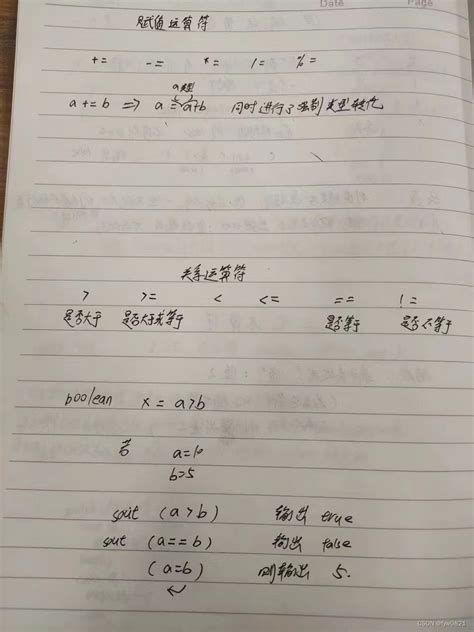 Date Page
赋值运算符
+= -= *= /= %=
a类型
a += b => a = a+b 同时进行了强制类型转化
关系运算符
> >= < <= == !=
是否大于 是否大于或等于 是否等于 是否不等于
boolean x = a>b
若 a=10
b=5
sout (a>b) 输出 true
sout (a==b) 输出 false
(a=b) 则输出 5.